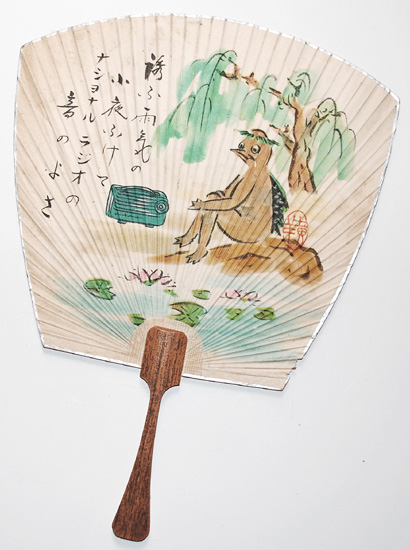 ふ雨の
小夜ふけて
ナショナル ラジオの
音のよさ